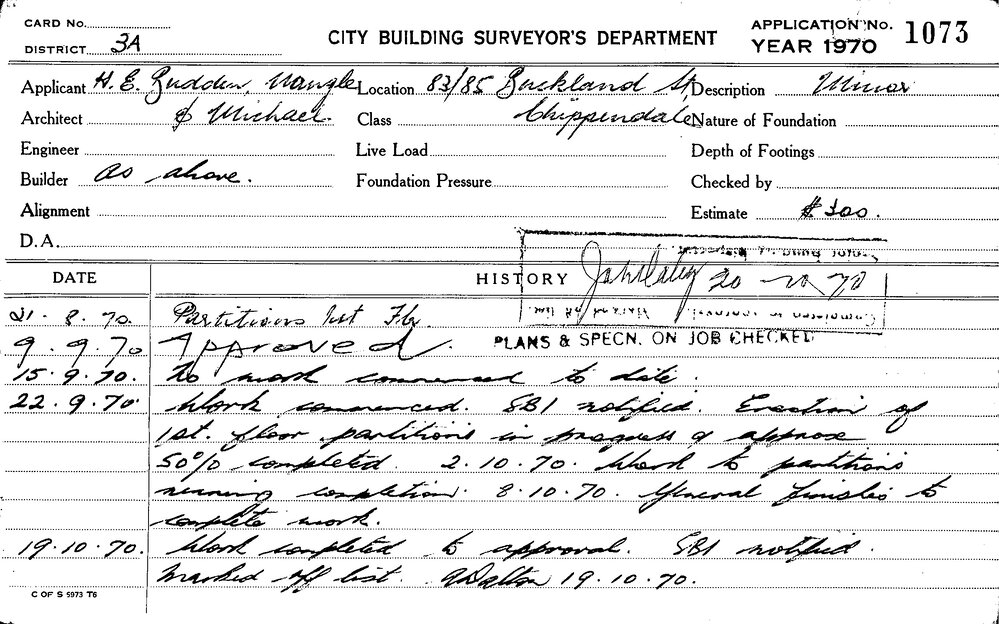 CARD No.
DISTRICT 3A
CITY BUILDING SURVEYOR'S DEPARTMENT
APPLICATION No. 1073
YEAR 1970
Applicant H. E. Budden, Nangle Location 83/85 Buckland St, Description Minor
Architect & Michael. Class Chippendale Nature of Foundation
Engineer Live Load Depth of Footings
Builder As above. Foundation Pressure Checked by
Alignment Estimate $300.
D.A.
DATE HISTORY 20 - 10 - 70
21. 8. 70. Partitions 1st Flr.
9. 9. 70 Approved. PLANS & SPECN. ON JOB CHECKED
15. 9. 70. No work commenced to date.
22. 9. 70. Work commenced. SBI notified. Erection of
1st. floor partitions in progress & approx
50% completed. 2.10.70. Work to partitions
nearing completion. 8.10.70. General finishes to
complete work.
19.10.70. Work completed to approval. SBI notified.
Marked off list. 19.10.70.
C OF S 5973 T6